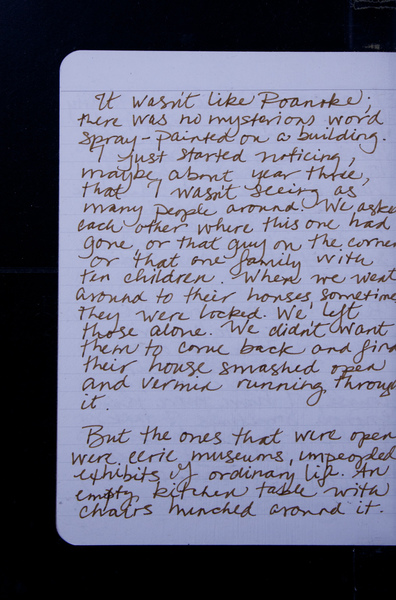 It wasn't like Roanoke;
there was no mysterious word
spray-painted on a building.
I just started noticing,
maybe about year three,
that I wasn't seeing as
many people around. We asked
each other where this one had
gone, or that guy on the corner
or that one family with
ten children. When we went
around to their houses, sometimes
they were locked. We left
those alone. We didn't want
them to come back and find
their house smashed open
and vermin running through
it.
But the ones that were open
were eerie museums, unpeopled
exhibits of ordinary life. An
empty kitchen table with
chairs hunched around it.